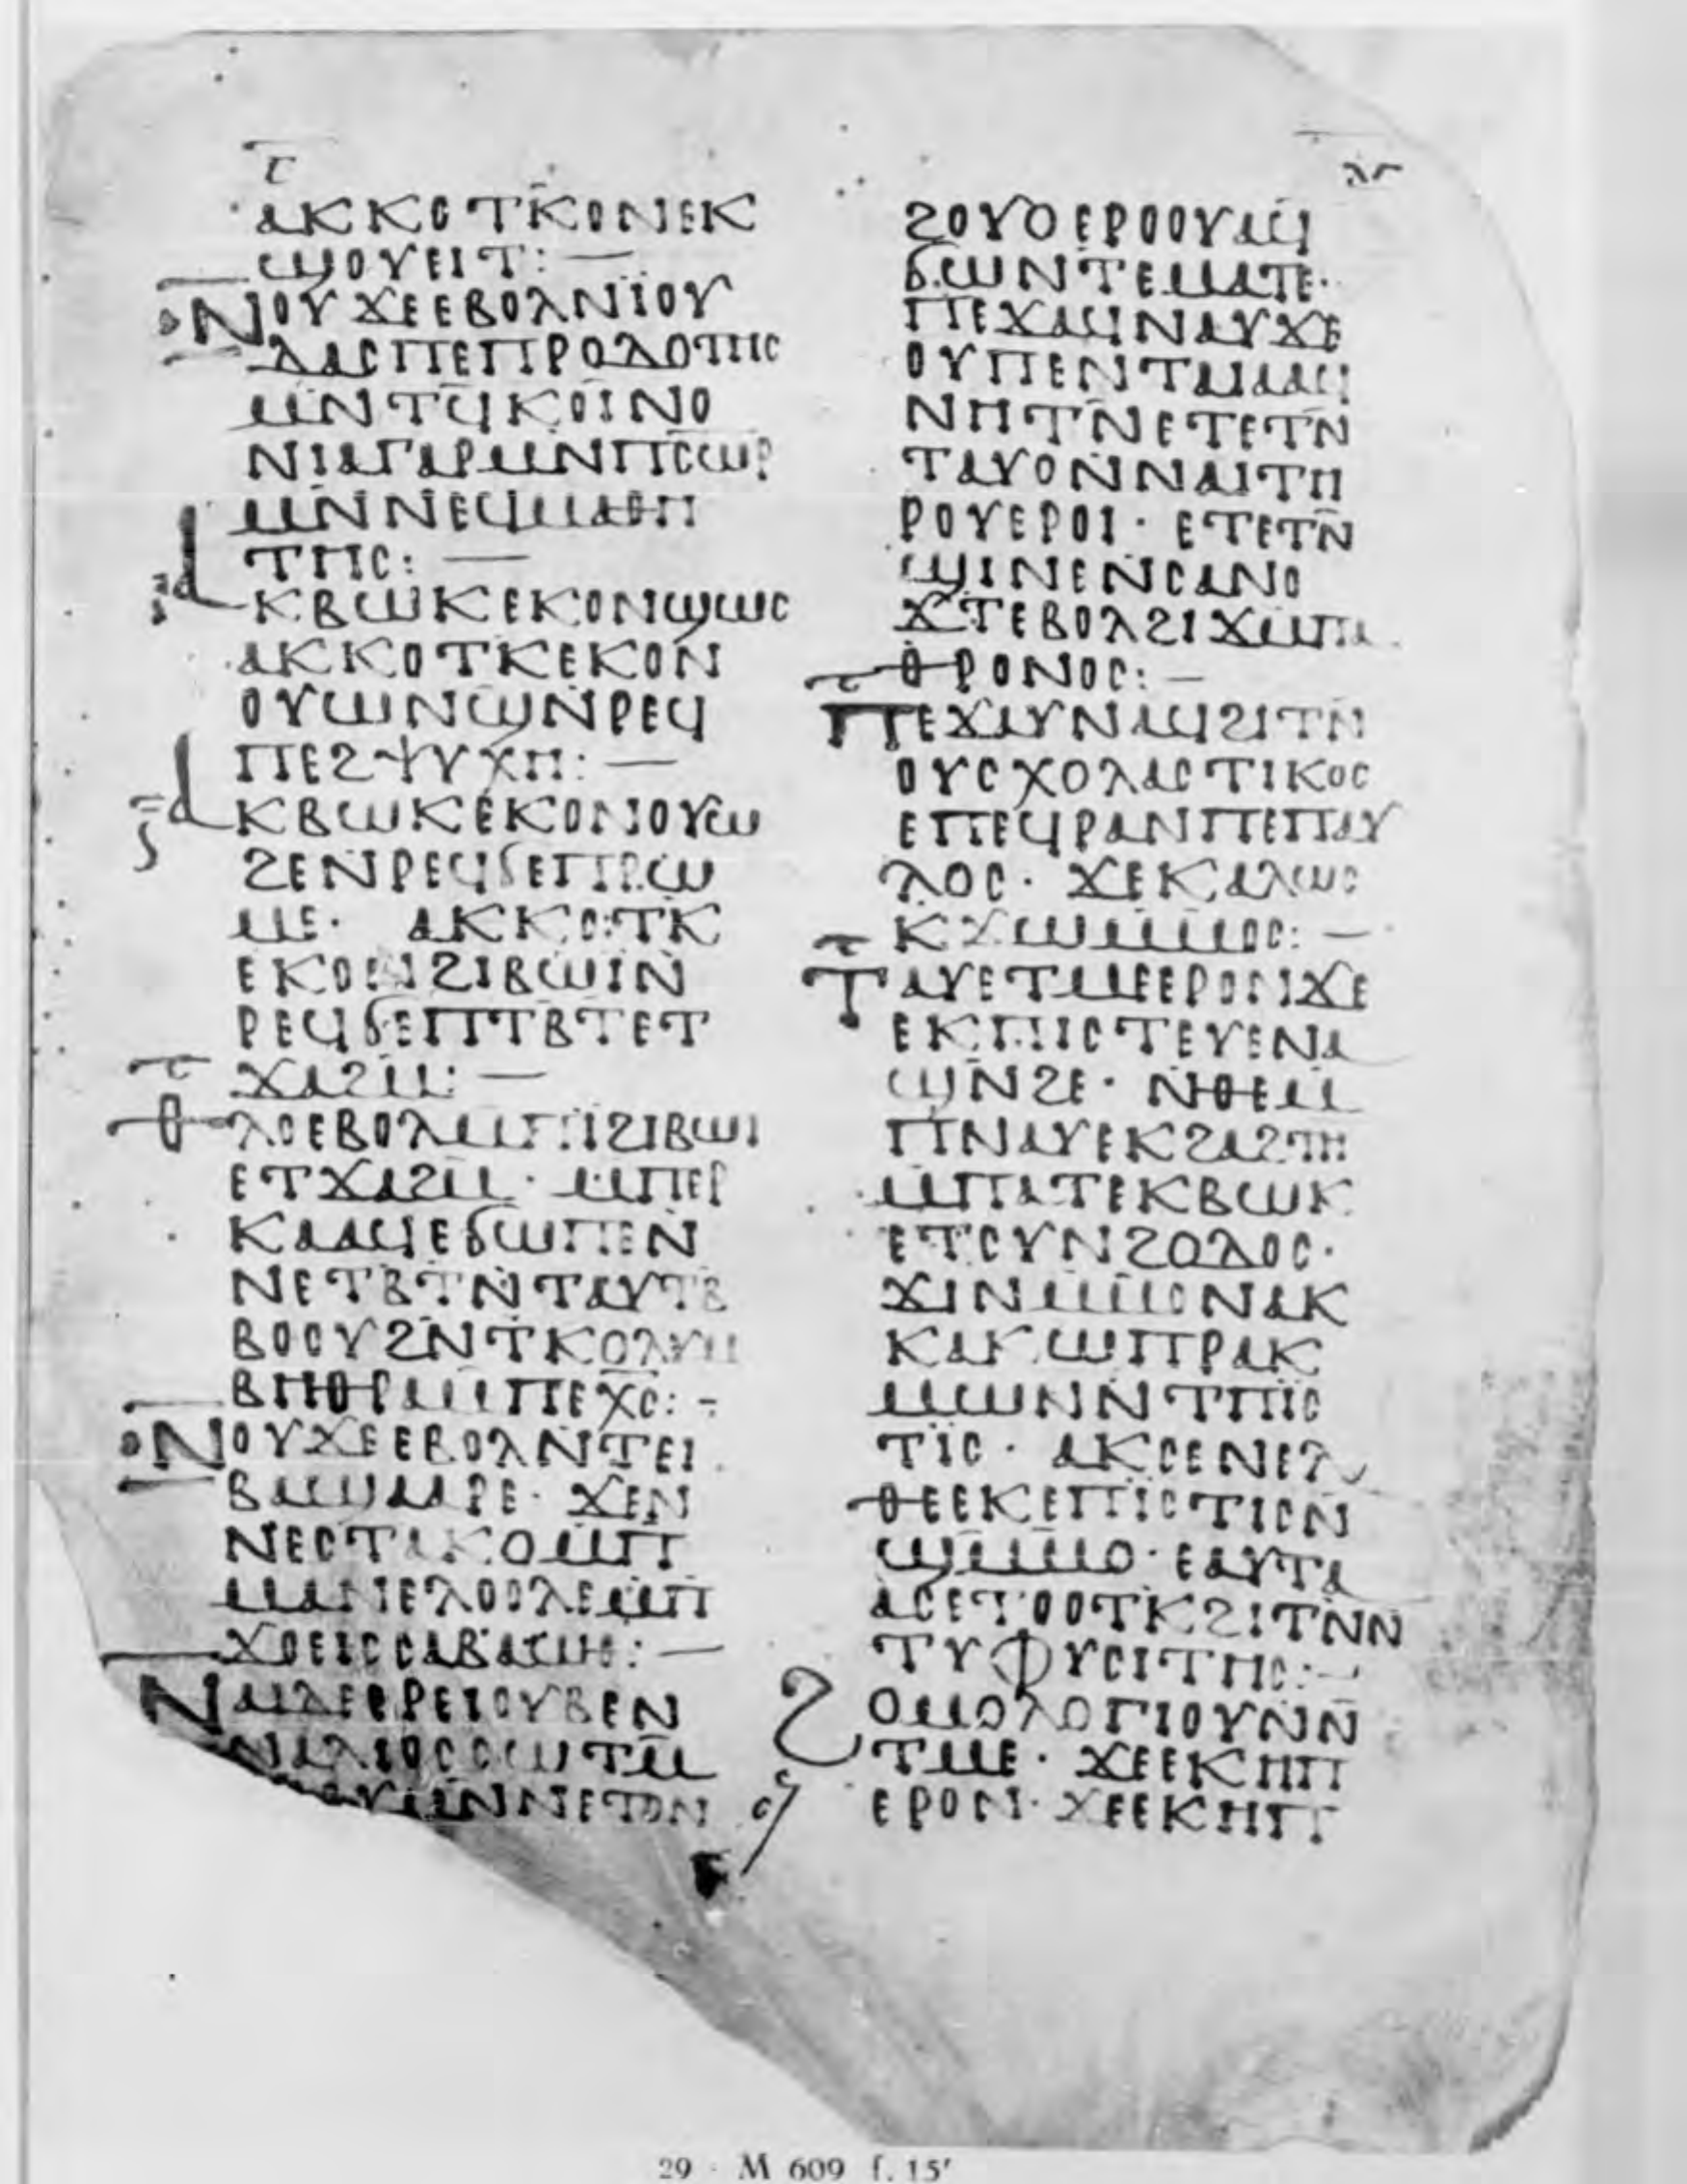 ⲁⲕⲕⲟⲧⲕ̄ⲟⲛⲉⲕ
ϣⲟⲩⲉⲓⲧ: —
ⲛⲟⲩϫⲉⲉⲃⲟⲗⲛ̄ⲓ̈ⲟⲩ
ⲇⲁⲥⲡⲉⲡⲣⲟⲇⲟⲧⲏⲥ
ⲙⲛ̄ⲧϥ̄ⲕⲟⲓⲛⲟ
ⲛⲓⲁⲅⲁⲣⲙⲛ̄ⲡⲥ̄ⲱⲣ
ⲙⲛ̄ⲛⲉϥⲙⲁⲑⲏ
ⲧⲏⲥ: —
ⲁⲕⲃⲱⲕⲉⲕⲟⲛϣⲱⲥ
ⲁⲕⲕⲟⲧⲕⲉⲕⲟⲛ
ⲟⲩⲱⲛϣⲛ̄ⲣⲉϥ
ⲡⲉϩⲯⲩⲭⲏ: —
ⲁⲕⲃⲱⲕⲉⲕⲟⲛⲟⲩⲱ
ϩⲉⲛⲣⲉϥϭⲉⲡⲣⲱ
ⲙⲉ· ⲁⲕⲕⲟⲧⲕ
ⲉⲕⲟⲛϩⲓⲃⲱⲓⲛ
ⲣⲉϥϭⲉⲡⲧⲃⲧⲉⲧ
ϫⲁϩⲙ: —
ⲑⲗⲟⲉⲃⲟⲗⲙⲡⲓϩⲓⲃⲱⲓ
ⲉⲧϫⲁϩⲙ· ⲙⲡⲉⲣ
ⲕⲁⲁϥⲉϭⲱⲡⲉⲛ
ⲛⲉⲧⲃⲧⲛ̄ⲧⲁⲩⲧⲃ
ⲃⲟⲟⲩϩⲛ̄ⲧⲕⲟⲗⲩⲙ
ⲃⲏⲑⲣⲁⲙⲡⲉⲭ̄ⲥ̄: –
ⲛⲟⲩϫⲉⲉⲃⲟⲗⲛ̄ⲧⲉⲓ
ⲃⲁϣⲁⲣⲉ· ϫⲉⲛ
ⲛⲉⲥⲧⲁⲕⲟⲙⲡ
ⲙⲁⲛⲉⲗⲟⲟⲗⲉⲙⲡ
ϫⲟⲉⲓⲥⲥⲁⲃⲁⲱⲑ: —
ⲥⲱⲧⲙ̄
ⲙⲛ̄ⲛⲉⲧⲟⲛ
ⲗ̄ⲅ̄
ϩⲟⲩⲟⲉⲣⲟⲟⲩⲁϥ
ϭⲱⲛⲧⲉⲙⲁⲧⲉ·
ⲡⲉϫⲁϥⲛⲁⲩϫⲉ
ⲟⲩⲡⲉⲛⲧⲁⲓⲁⲁϥ
ⲛⲏⲧⲛ̄ⲉⲧⲉⲧⲛ̄
ⲧⲁⲩⲟⲛ̄ⲛⲁⲓⲧⲏ
ⲣⲟⲩⲉⲣⲟⲓ· ⲉⲧⲉⲧⲛ̄
ϣⲓⲛⲉⲛⲥⲁⲛⲟ
ϫⲧ̄ⲉⲃⲟⲗϩⲓϫⲙⲡⲁ
ⲑⲣⲟⲛⲟⲥ: —
ⲡⲉϫⲁⲩⲛⲁϥϩⲓⲧⲛ
ⲟⲩⲥⲭⲟⲗⲁⲥⲧⲓⲕⲟⲥ
ⲉⲡⲉϥⲣⲁⲛⲡⲉⲡⲁⲩ
ⲗⲟⲥ· ϫⲉⲕⲁⲗⲱⲥ
ⲕϫⲱⲙ̄ⲙⲟⲥ: —
ⲧⲁⲩⲉⲧⲙⲉⲉⲣⲟⲛϫⲉ
ⲉⲕⲡⲓⲥⲧⲉⲩⲉⲛⲁ
ϣⲛϩⲉ· ⲛⲑⲉⲙ
ⲡⲛⲁⲩⲉⲕϩⲁϩⲧⲏ
ⲙⲡⲁⲧⲉⲕⲃⲱⲕ
ⲉⲧⲥⲩⲛϩⲟⲇⲟⲥ·
ϫⲓⲛⲙ̄ⲙⲟⲛⲁⲕ
ⲕⲁⲕⲱⲡⲣⲁⲕ
ⲙⲱⲛⲛⲧⲡⲓⲥ
ⲧⲓⲥ· ⲁⲕⲥⲉⲛⲉⲗ
ⲑⲉⲉⲕⲉⲡⲓⲥⲧⲓⲥⲛ
ϣⲙ̄ⲙⲟ· ⲉⲁⲩⲧⲁ
ⲁⲥⲉⲧⲟⲟⲧⲕϩⲓⲧⲛ̄ⲛ
ⲧⲩⲫⲩⲥⲓⲧⲏⲥ: —
ϩⲟⲙⲟⲗⲟⲅⲓⲟⲩⲛ̄ⲛ̄
ⲧⲙⲉ· ϫⲉⲉⲕⲏⲡ
ⲉⲣⲟⲛ· ϫⲉⲉⲕⲏⲡ
29 · M 609 f. 15ʳ